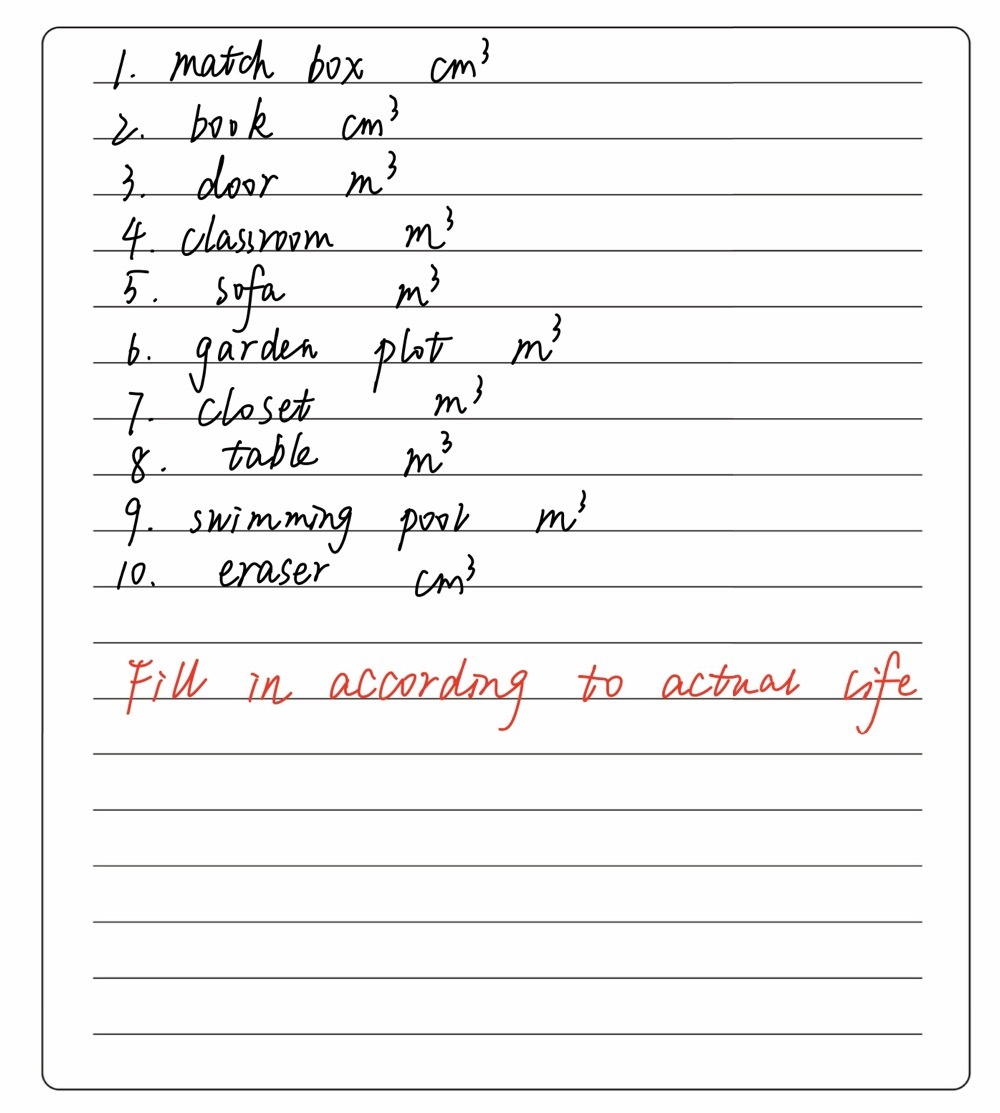 1. match box cm³
2. book cm³
3. door m³
4. classroom m³
5. sofa m³
6. garden plot m³
7. closet m³
8. table m³
9. swimming pool m³
10. eraser cm³
Fill in according to actual life